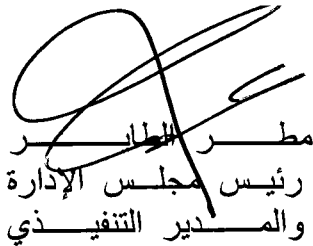 مطر الطاير
رئيس مجلس الإدارة
والمدير التنفيذي